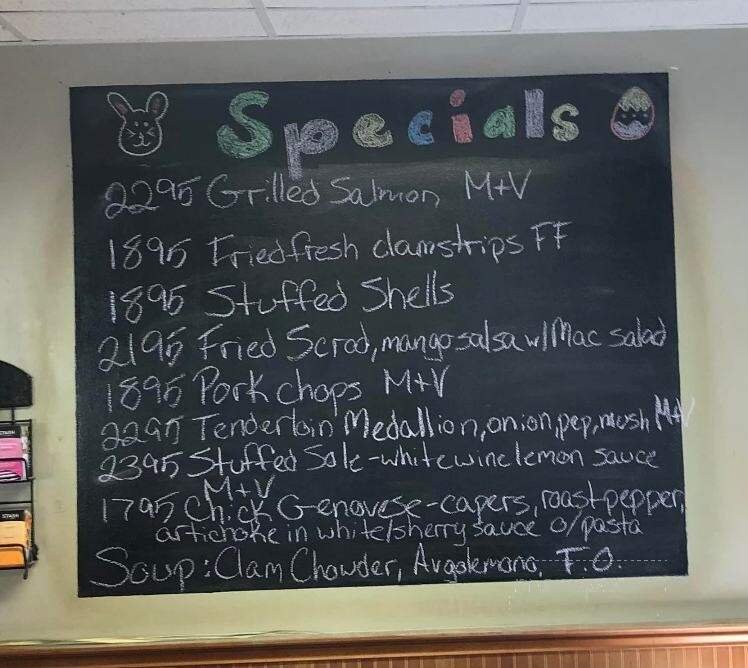 Specials
2295 Grilled Salmon M+V
1895 Fried fresh clamstrips FF
1895 Stuffed Shells
2195 Fried Scrod, mango salsa w/ Mac salad
1895 Pork chops M+V
2295 Tenderloin Medallion, onion, pep, mush M+V
2395 Stuffed Sole - white wine lemon sauce
M+V
1795 Chick Genovese - capers, roast pepper,
artichoke in white/sherry sauce o/pasta
Soup: Clam Chowder, Avgolemano, F.O.
STASH
STASH